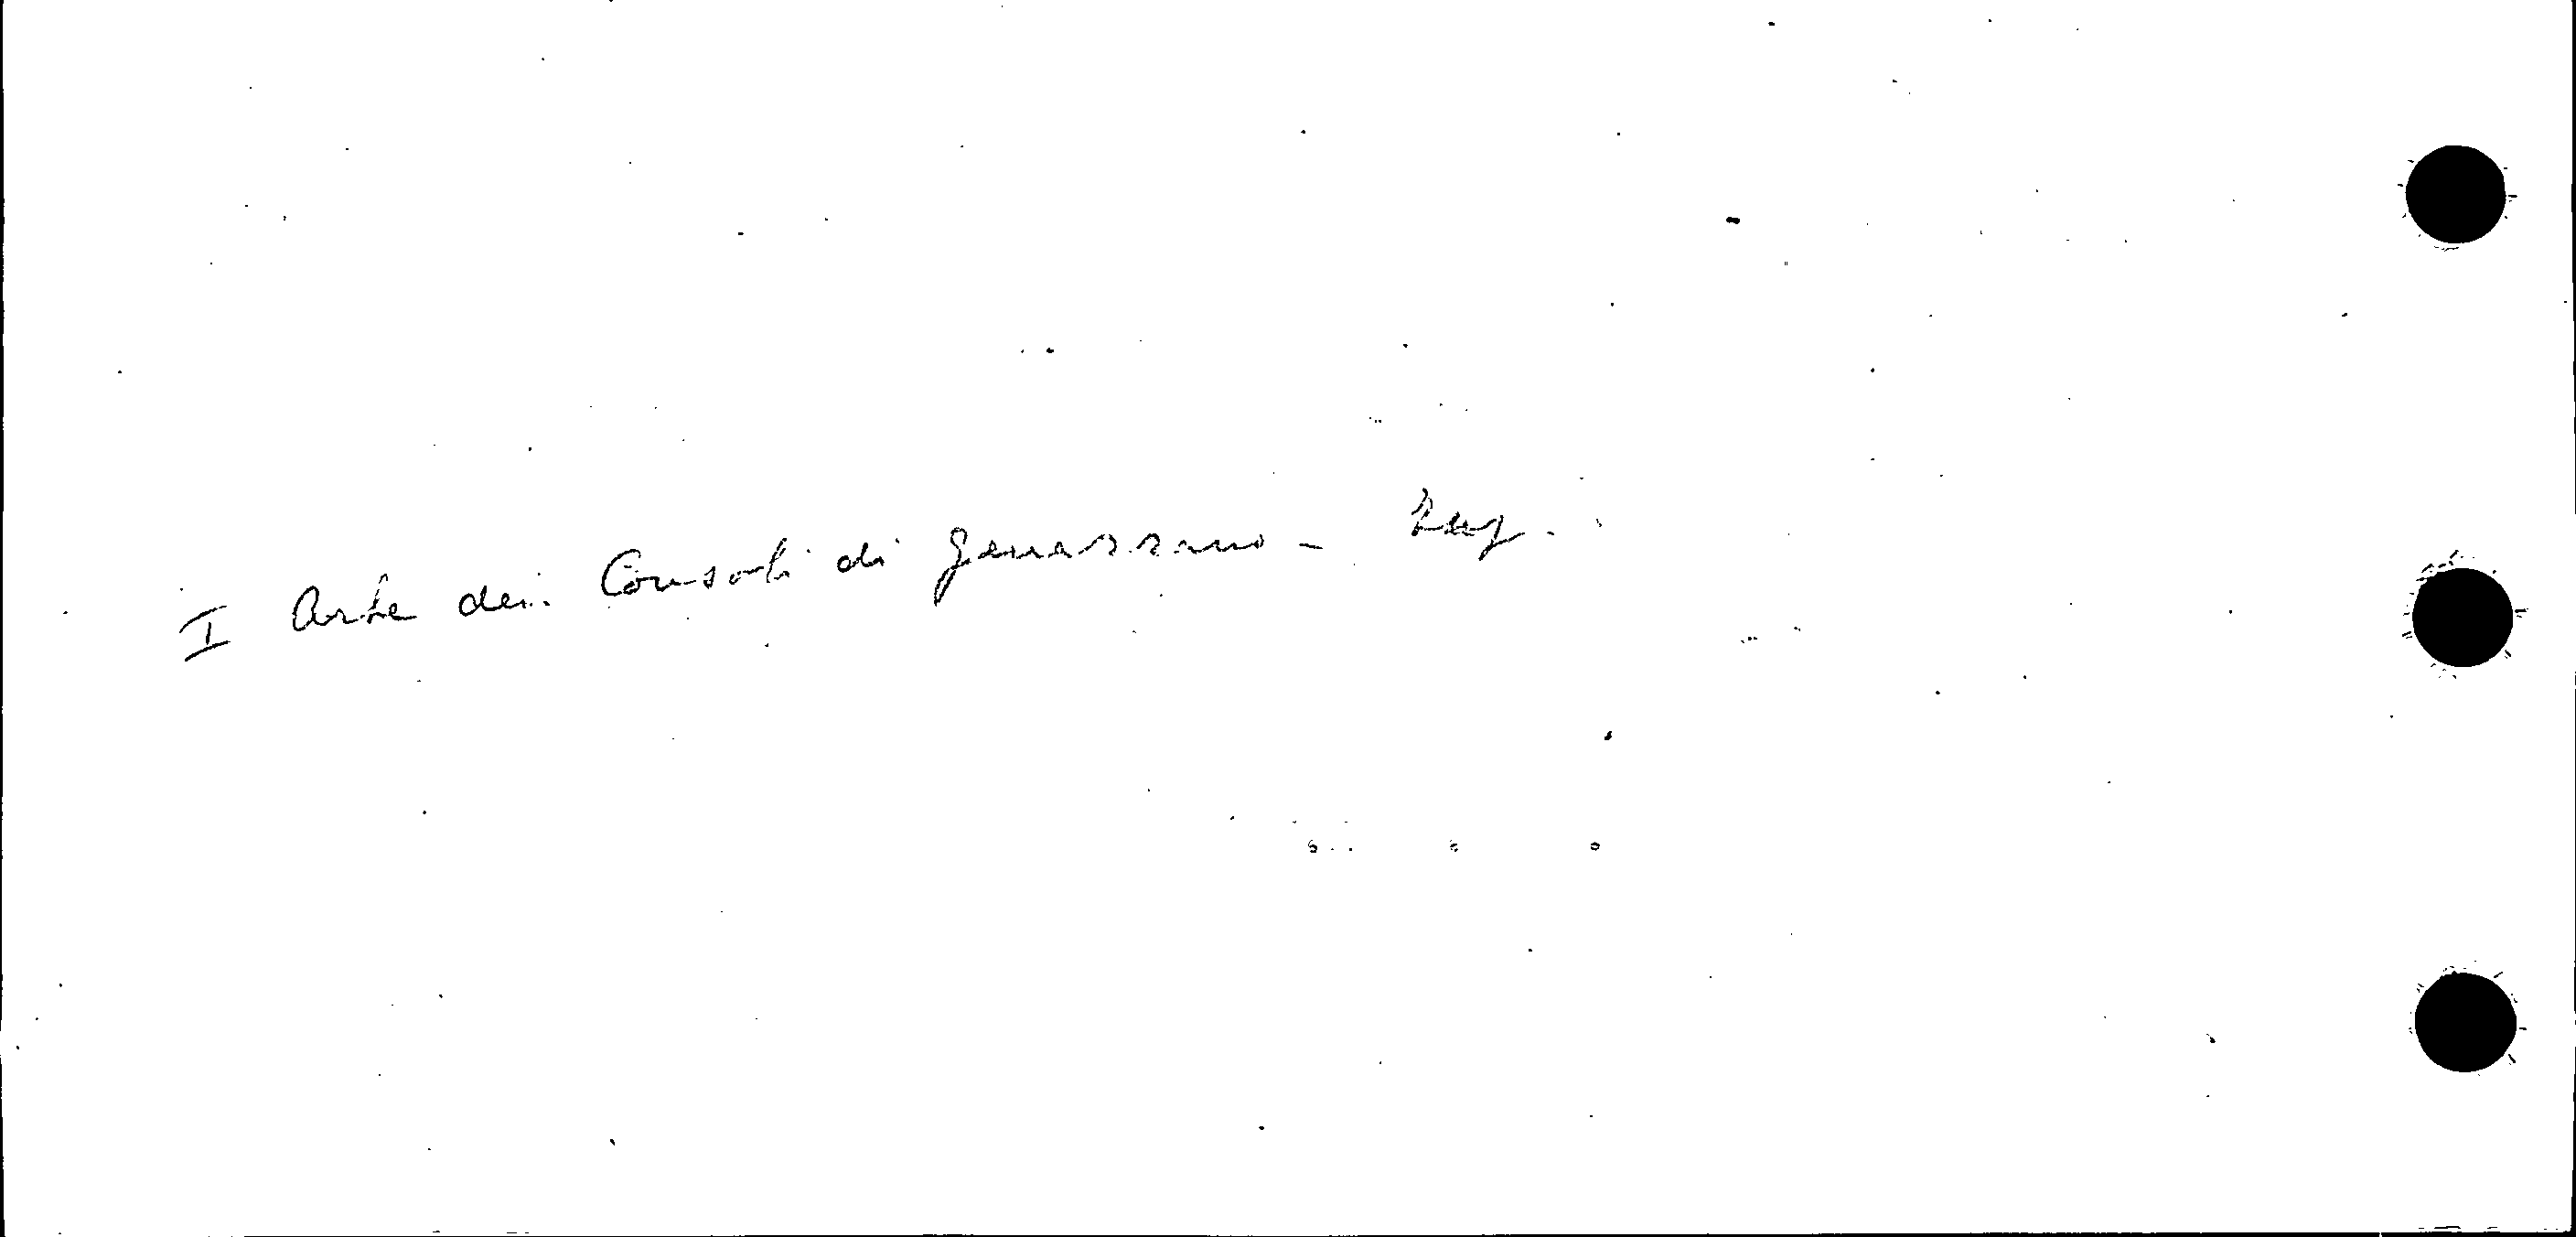 I Arte dei Consoli di Genazzano -